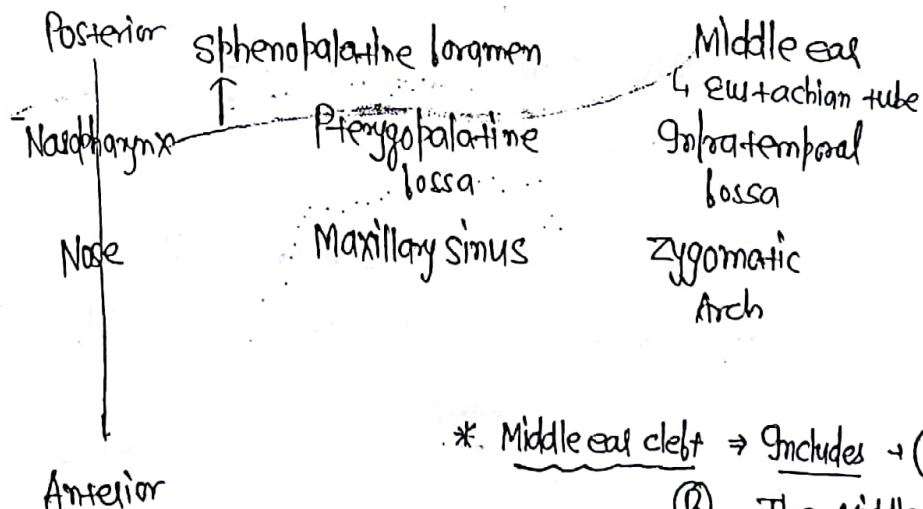 Posterior
Sphenopalatine foramen
Middle ear
↳ Eustachian tube
Nasopharynx
Pterygopalatine
fossa
Infratemporal
fossa
Nose
Maxillary sinus
Zygomatic
Arch
Anterior
* Middle ear cleft ⇒ Includes → (